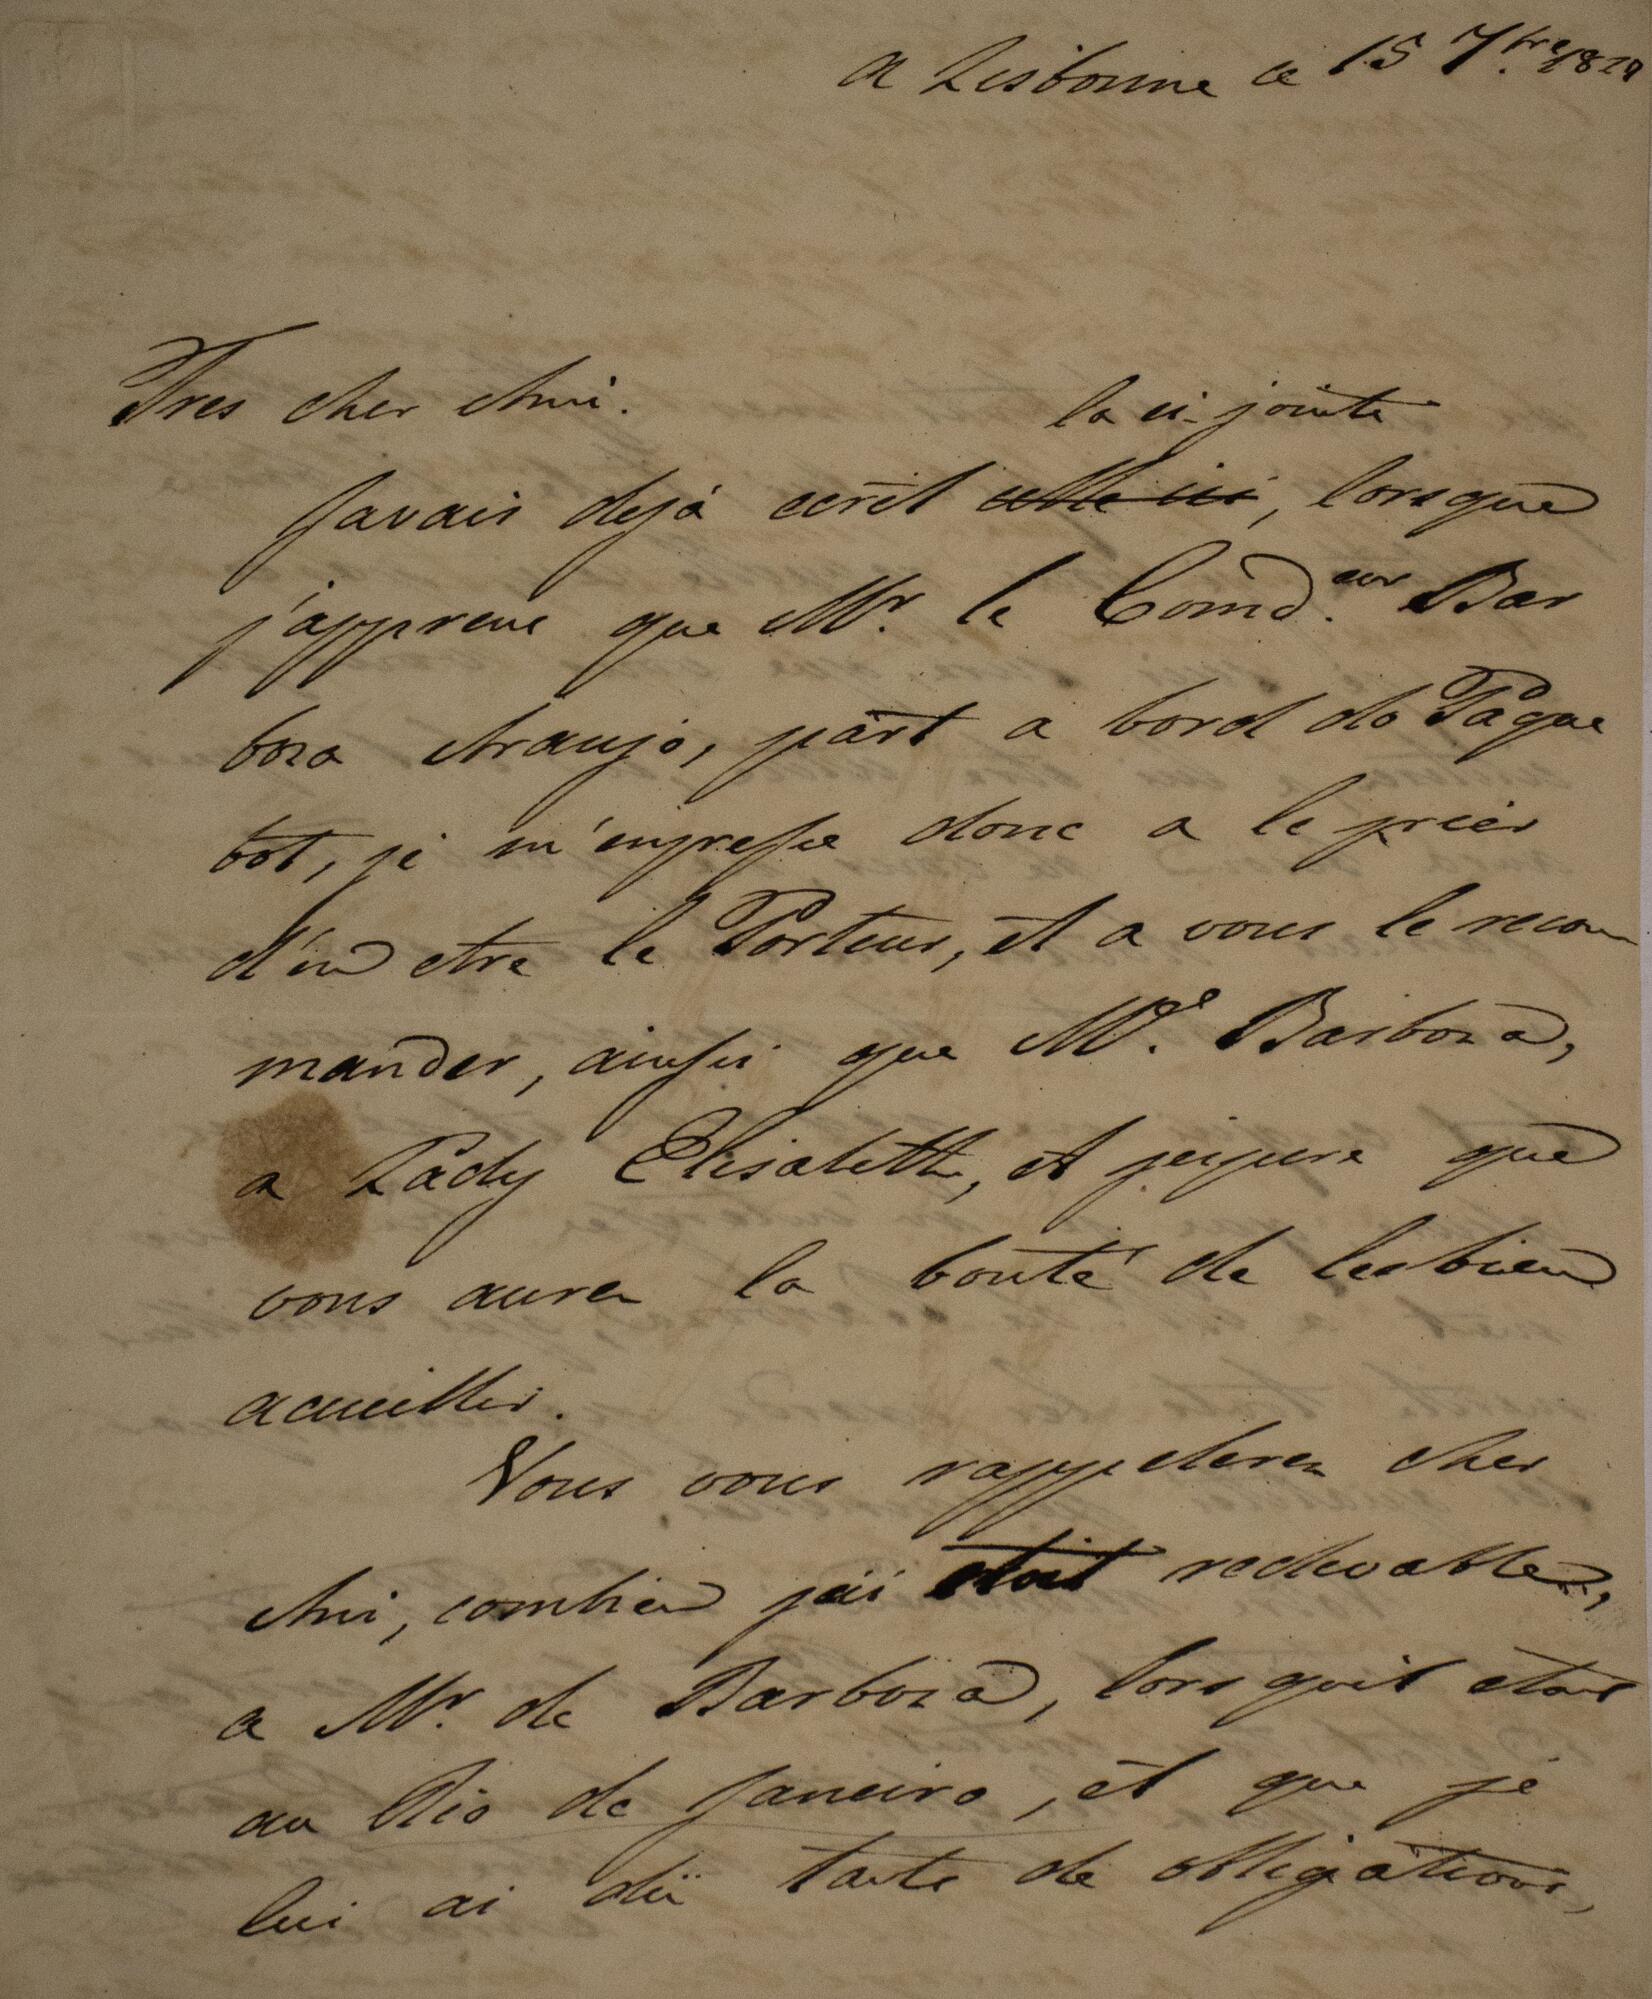 a Lisbonne ce 15 7.bre 1829
Tres cher Ami.
la ci-jointe
Javais dejá ecrit celle ici, lorsque
j'apprens que Mr. le Comd.eur Bar
boza Araujo, part a bord do Paque
bot, je m'empresse donc a le prier
d'en etre le Porteur, et a vous le recom
mander, ainsi que Me. Barboza,
a Lady Elisabetth, et jespere que
vous aurez la bonté de les bien
acueillir.
Vous vous rappelerez cher
Ami, combien jai etait redevable,
a Mr. de Barboza, lorsquil etait
au Rio de Janeiro, et que je
lui ai dü tants de obligations,